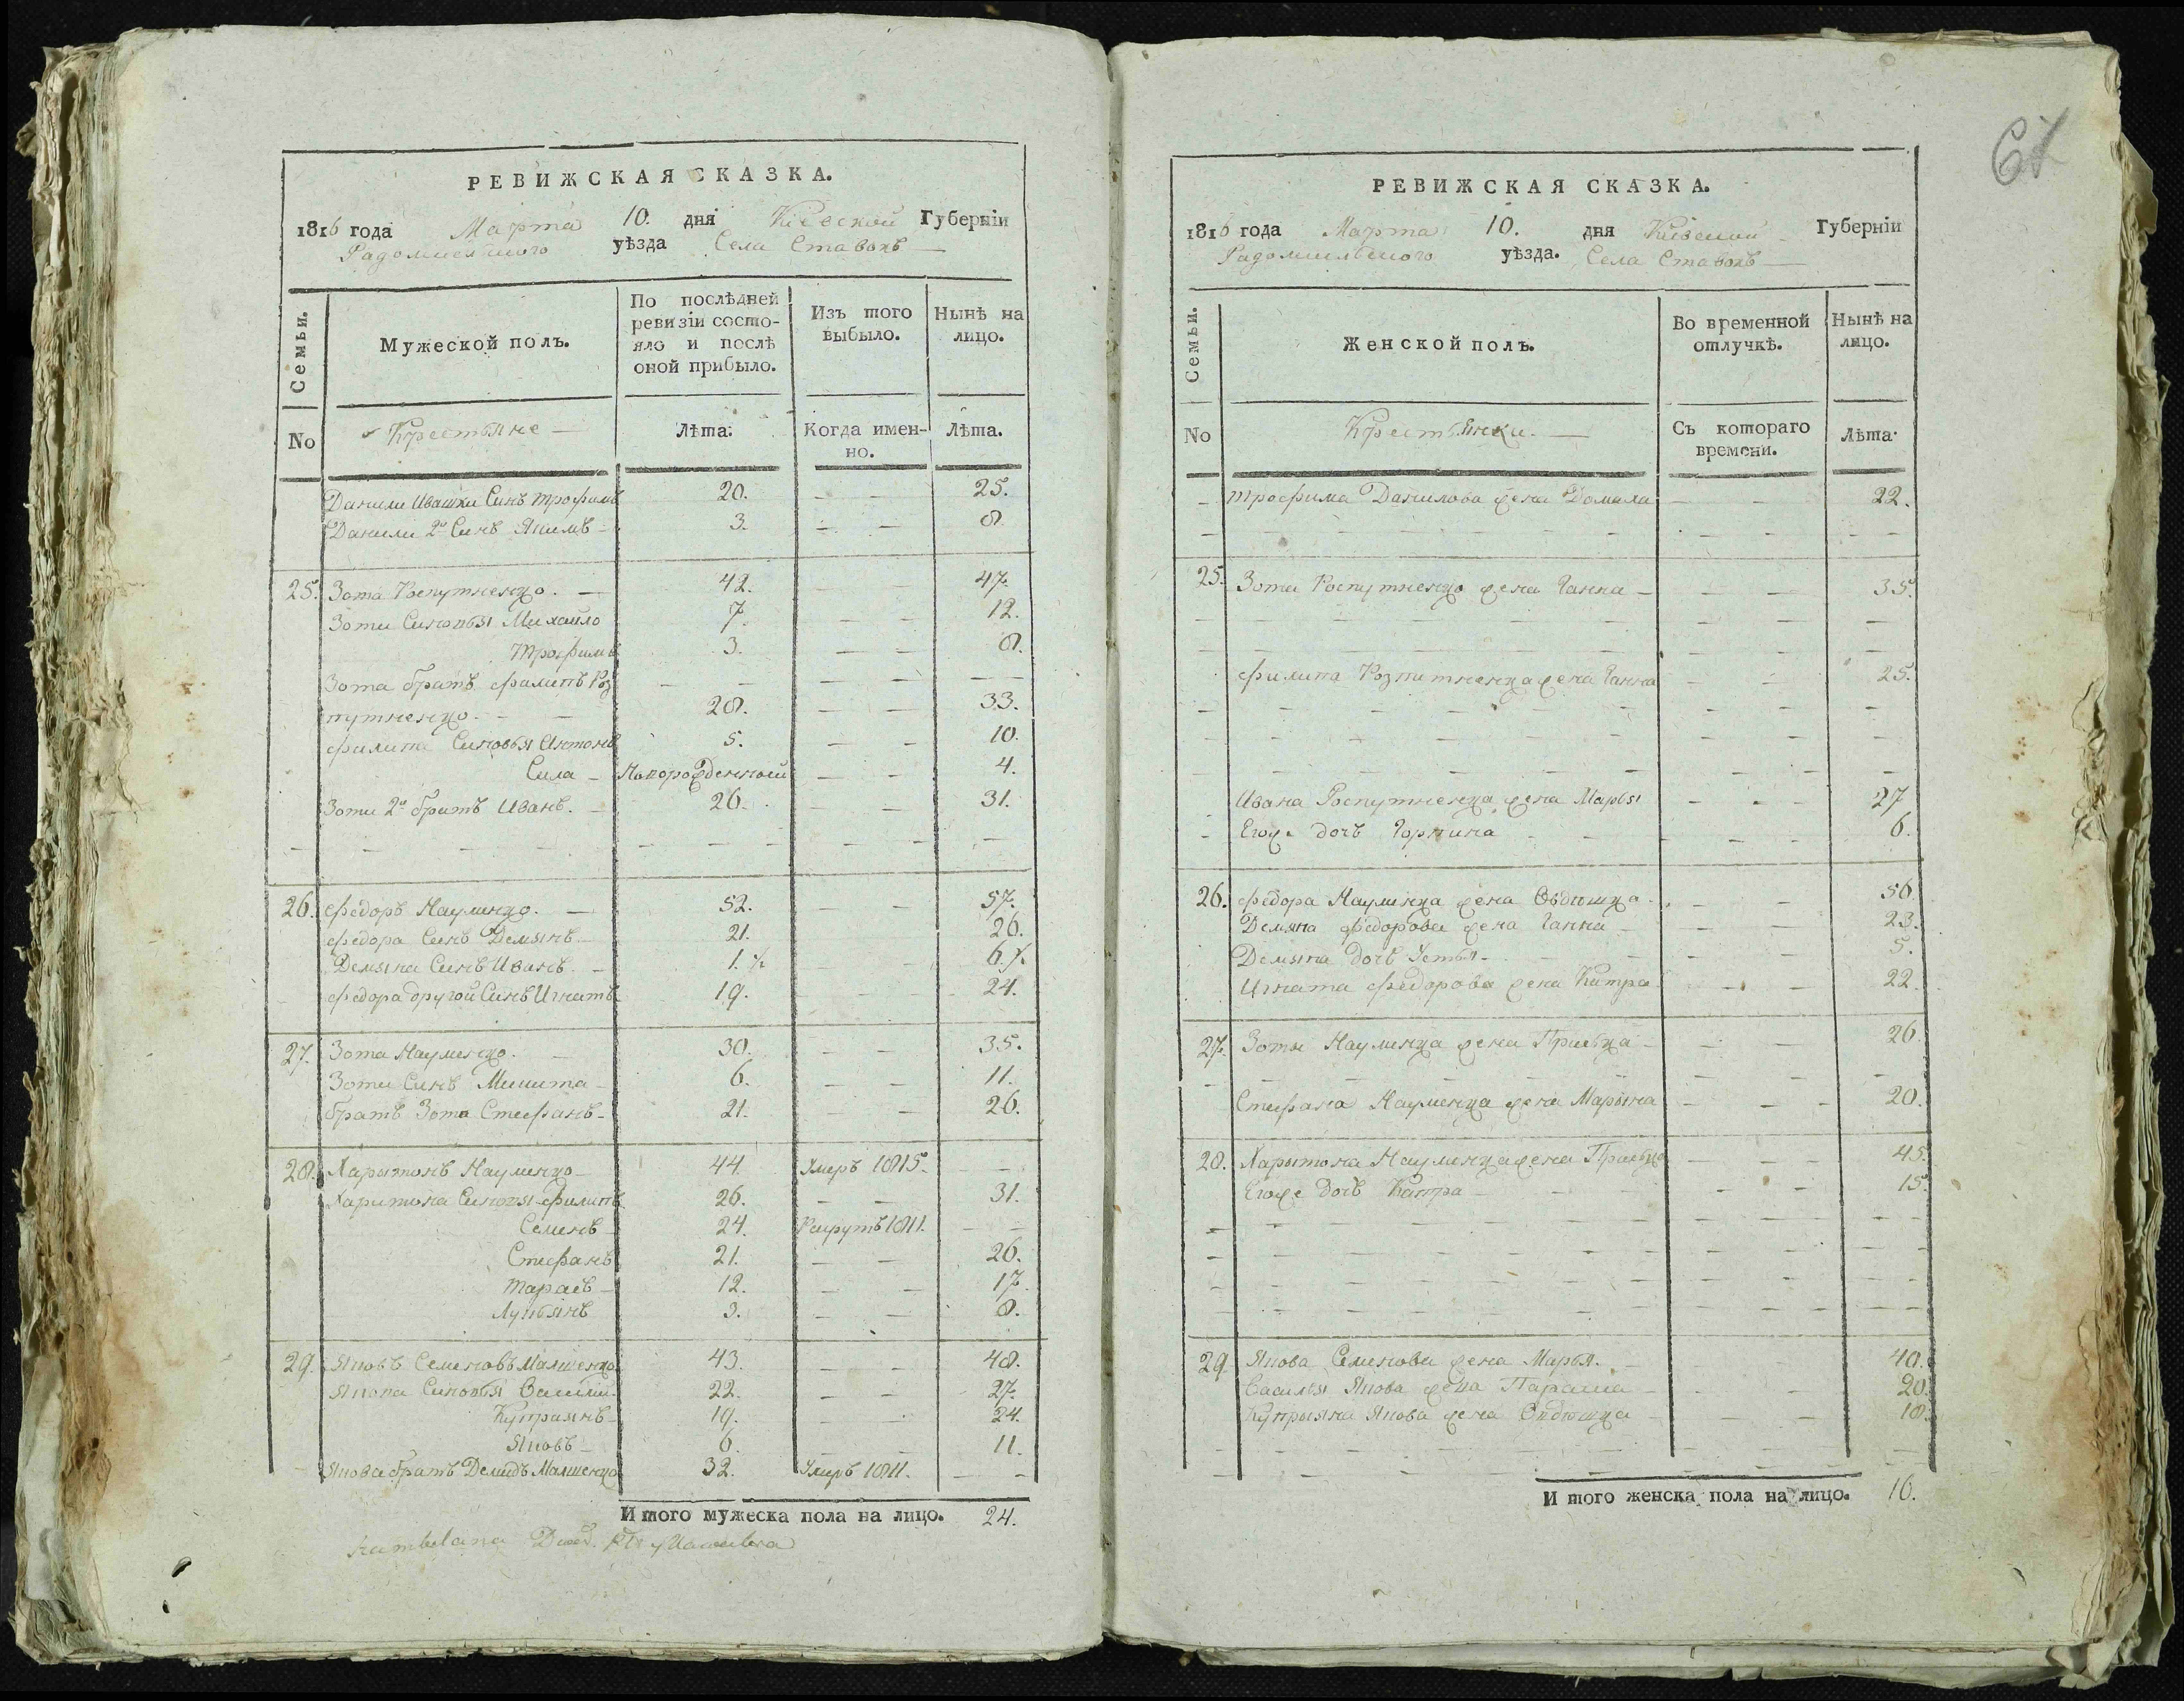 РЕВИЖСКАЯ СКАЗКА.
1816 года Марта 10. дня Кіевской Губерніи
Радомысльского уѣзда Села Ставокъ
Семьи.
Мужеской полъ.
По послѣдней ревизіи состо-
яло и послѣ оной прибыло.
Изъ того выбыло.
Нынѣ на лицо.
No Крестьяне Лѣта. Когда имен-
но. Лѣта.
Данили Ивашки Синъ Трофимъ 20. 25.
Данили 2й Синъ Якимъ 3. 8
25. Зота Роспутненко. 42. 47.
Зоти Синовья Михайло 7. 12.
Трофимъ 3. 8.
Зота братъ Филипъ Роз
путненко. 28. 33.
Филипа Синовья Антонъ 5. 10.
Сила Новорожденный 4.
Зоти 2й братъ Иванъ. 26. 31.
26. Федоръ Науменко. 52. 57.
Федора Синъ Демьянъ 21. 26.
Демьяна Синъ Иванъ. 1. ½ 6. ½
Федора другой Синъ Игнатъ 19. 24.
27. Зота Науменко. 30. 35.
Зоти Синъ Микита 6. 11.
братъ Зота Стефанъ 21. 26.
28. Харитонъ Науменко 44. Умеръ 1815.
Харитона Синовья Филипъ 26. 31.
Семенъ 24. Рекрутъ 1811.
Стефанъ 21. 26.
Тарасъ 12. 17.
Лукьянъ 3. 8.
29. Яковъ Семеновъ 43. 48.
Якова Синовья Василий 22. 27.
Купраянъ 19. 24.
Яковъ 6. 11.
Якова братъ Демидъ 32. Умеръ 1811.
И того мужеска пола на лицо. 24.
РЕВИЖСКАЯ СКАЗКА.
1816 года Марта 10. дня Кіевской Губерніи
Радомысльского уѣзда. Села Ставокъ
Семьи.
Женской полъ.
Во временной отлучкѣ.
Нынѣ на лицо.
No Крестьянки. Съ котораго
времени. Лѣта.
Трофима Данилова жена Домаха 22.
25. Зоти Роспутненко жена Ганна 35.
Филипа Розпутненка жена Ганна 25.
Ивана Роспутненка жена Марья 27
Егоже дочъ Горпина 6.
26. Федора Науменка жена Овдюшка 56
Демяна Федорова жена Ганна 23.
Демьяна дочъ Устья 5.
Игната Федорова жена Катра 22.
27. Зоти Науменка жена Приська 26
Стефана Науменка жена Марына 20.
28. Харытона Науменка жена Приська 45
Егоже дочъ Катра 15.
29. Якова Семенова жена Марья. 40.
Василья Якова жена Параска 20.
Купрыяна Якова жена Овдюшка 18.
И того женска пола на лицо. 16.